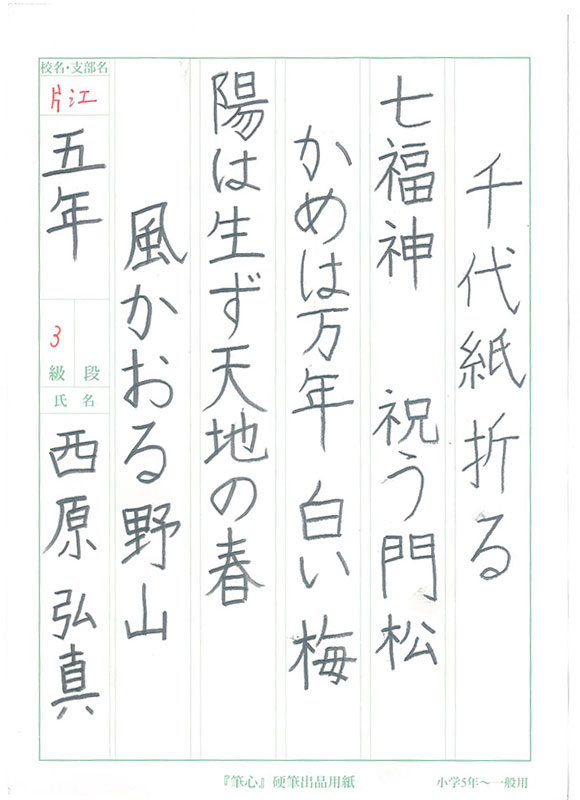 千代紙折る
七福神 祝う門松
かめは万年 白い梅
陽は生ず天地の春
風かおる野山
校名・支部名
片江
五年
3
級 段
氏名
西原 弘真
『筆心』硬筆出品用紙
小学5年～一般用